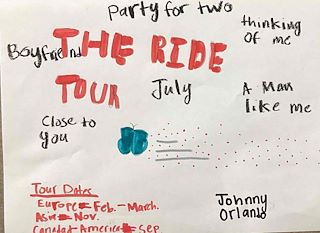 Party for two
thinking
of me
Boyfriend
THE RIDE
TOUR
July
A Man
like me
Close to
you
Tour Dates
Europe= Feb. - March.
Asia= Nov.
Canada+America= Sep
Johnny
Orlando